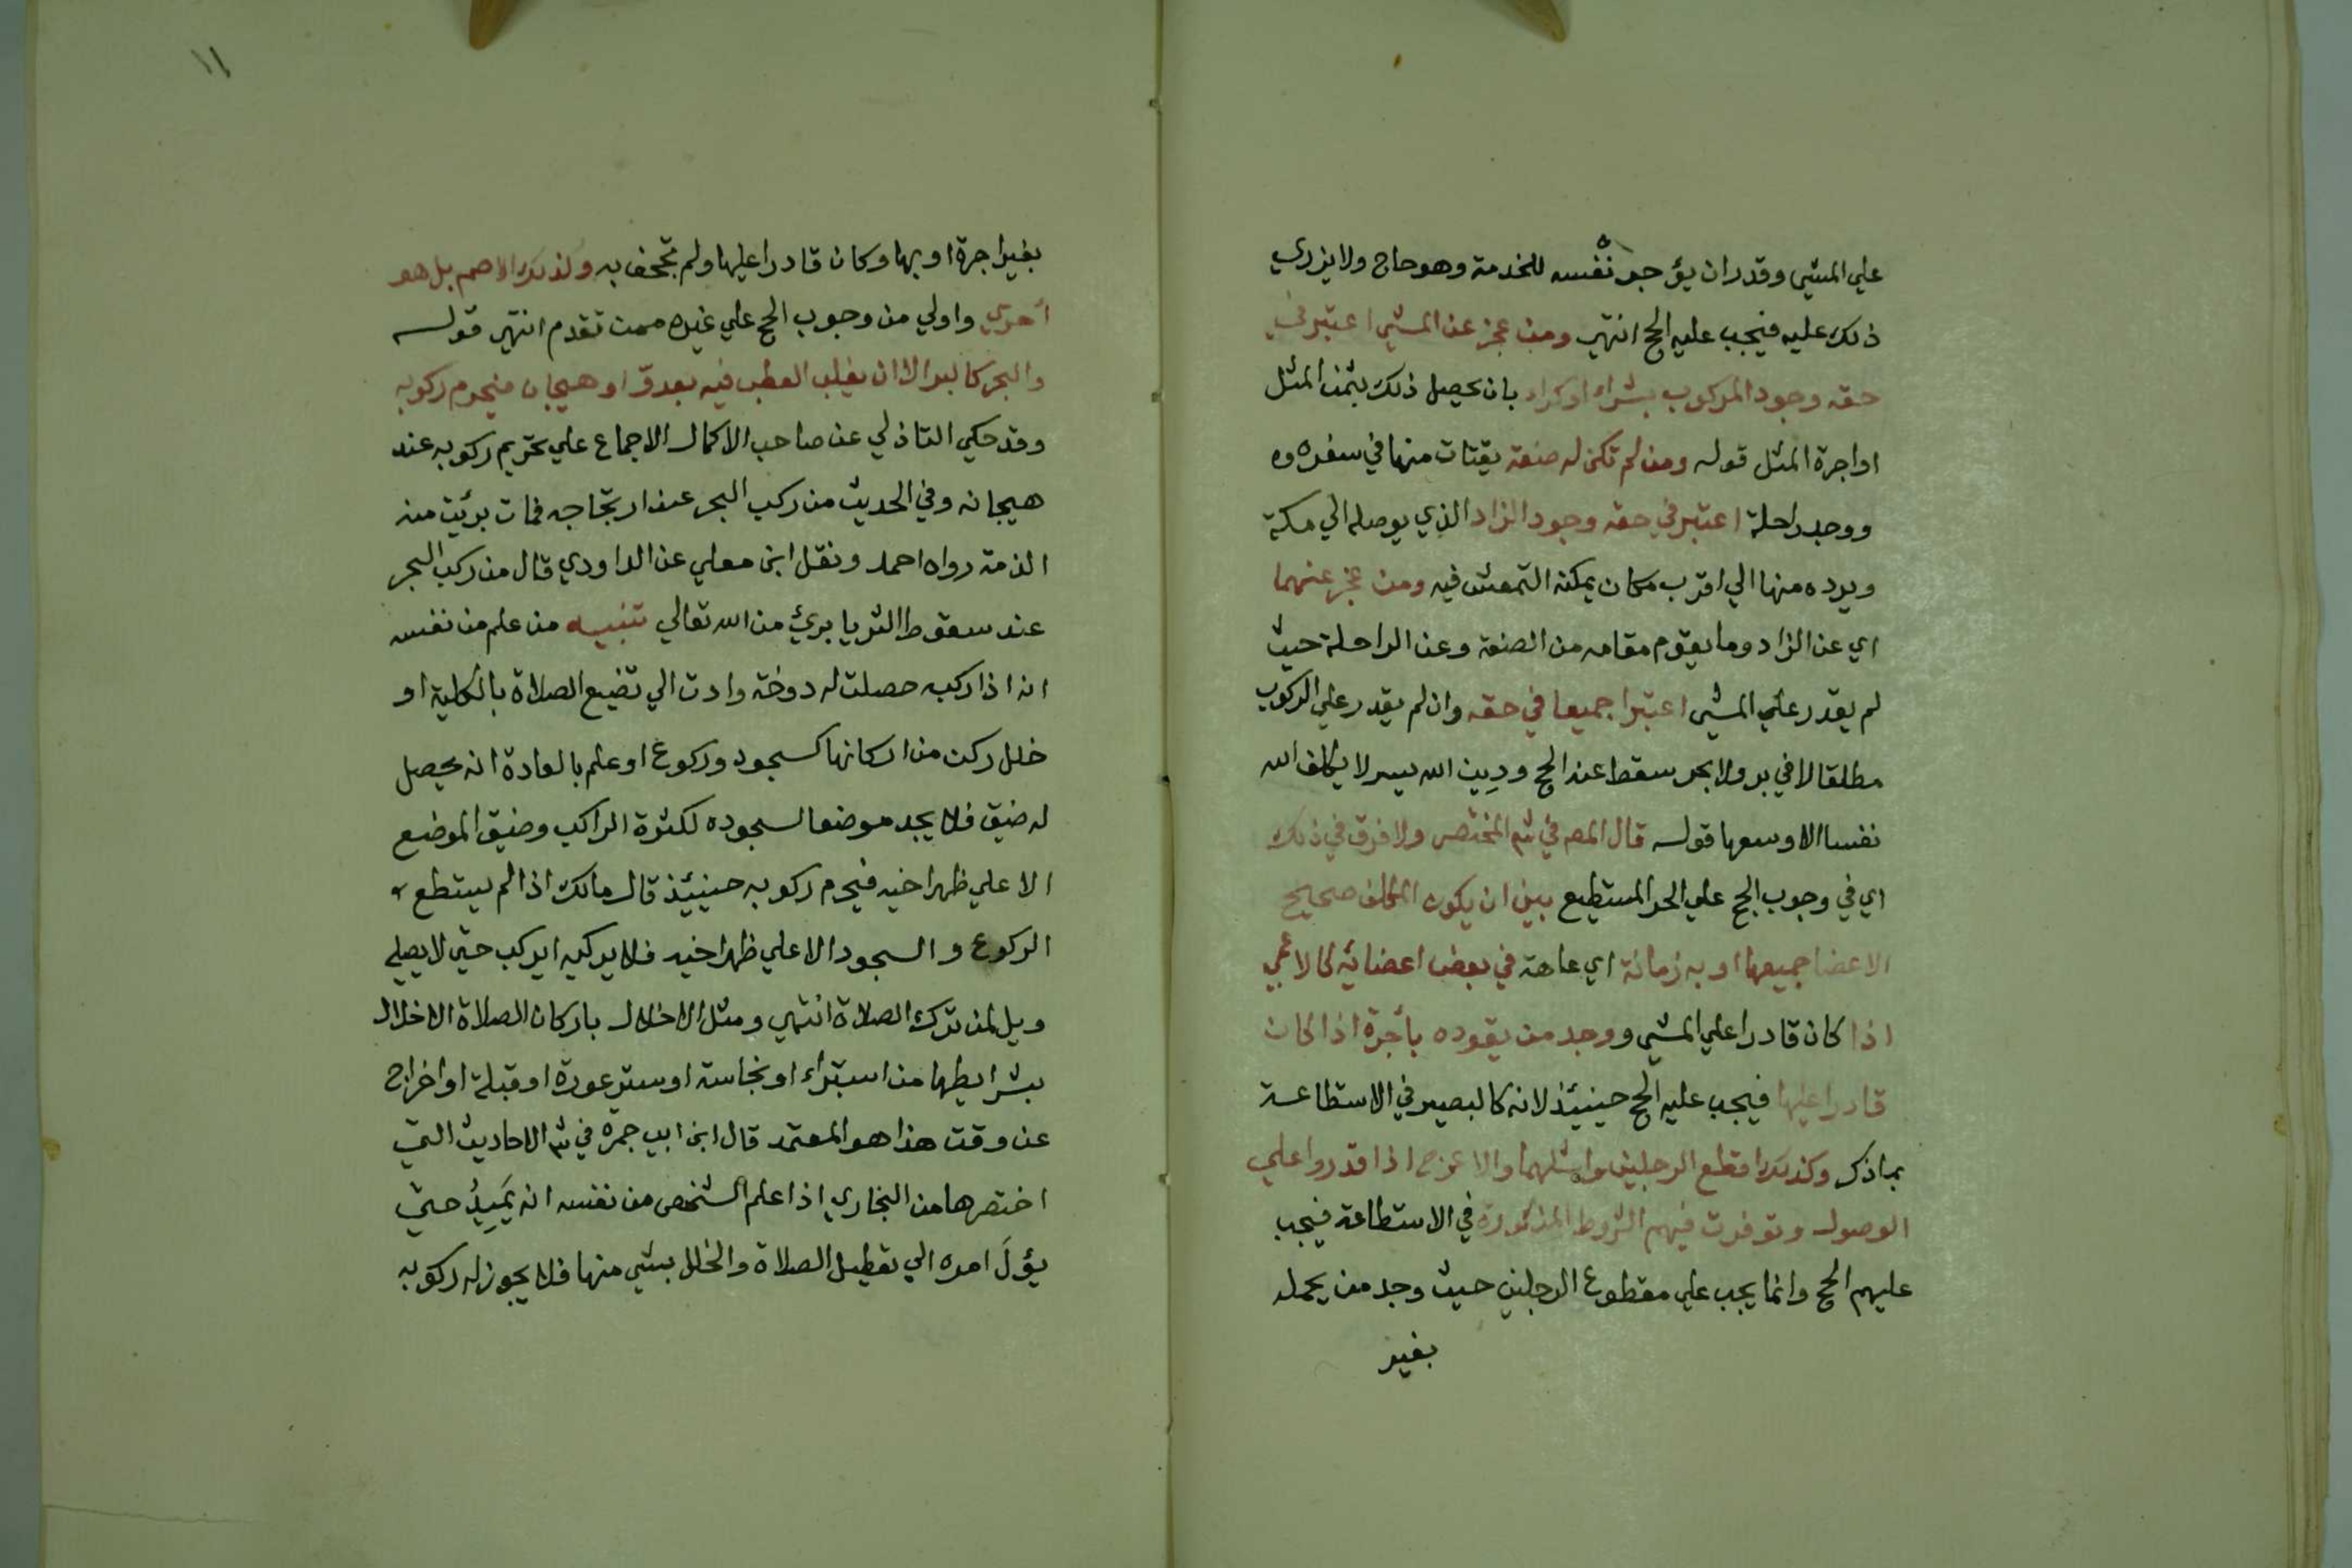 علي المشي وقدر ان يؤجر نفسه للخدمة وهو حاج ولا يزري
ذلك عليه فيجب عليه الحج انتهي ومن عجز عن المشي اعتبر في
حقه وجود المركوب بشراء او كراء بان يحصل ذلك بثمن المثل
او اجرة المثل قوله ومن لم تكن له صنعة يقتات منها في سفره وه
ووجد راحلة اعتبر في حقه وجود الزاد الذي يوصله الي مكة
ويرده منها الي اقرب مكان يمكنه التمعش فيه ومن عجز عنهما
اي عن الزاد وما يقوم مقامه من الصنعة وعن الراحلة حيث
لم يقدر علي المشي اعتبرا جميعا في حقه وان لم يقدر علي الركوب
مطلقا لا في بر ولا بحر سقط عنه الحج ودِين الله يسر لا يكلف الله
نفسا الا وسعها قوله قال المص في شر المختصر ولا فرق في ذلك
اي في وجوب الحج علي الحر المستطيع بين ان يكون المكلف صحيح
الاعضا جميعها او به زمانة اي عاهة في بعض اعضائه كالاعمي
اذا كان قادرا علي المشي ووجد من يقوده بأجرة اذا كان
قادرا عليها فيجب عليه الحج حينيئذ لانه كالبصير في الاستطاعة
بما ذكر وكذلك اقطع الرجلين واشلهما والاعرج اذا قدروا علي
الوصول وتوفرت فيهم الشروط المذكورة في الاستطاعة فيجب
عليهم الحج وانما يجب علي مقطوع الرجلين حيث وجد من يحمله
بغير
١١
بغير اجرة او بها وكان قادرا عليها ولم تجحف به وكذلك الاصم بل هو
أحري واولي من وجوب الحج علي غيره ممن تقدم انتهي قوله
والبحر كالبر الا ان يغلب العطب فيه بعدوّ او هيجان فيحرم ركوبه
وقد حكي التاذلي عن صاحب الاكمال الاجماع علي تحريم ركوبه عند
هيجانه وفي الحديث من ركب البحر عند ارتجاجه فمات برئت منه
الذمة رواه احمد ونقل ابن معلي عن الداودي قال من ركب البحر
عند سقوط الثريا بريئ من الله تعالي تنبيه من علم من نفسه
انه اذا ركب حصلت له دوخة وادت الي تضيع الصلاة بالكلية او
خلل ركن من اركانها كسجود وركوع او علم بالعادة انه يحصل
له ضيق فلا يجد موضعا لسجوده لكثرة الراكب وضيق الموضع
الا علي ظهر اخيه فيحرم ركوبه حينيئذ قال مالك اذا لم يستطع
الركوع والسجود الا علي ظهر اخيه فلا يركبه ايركب حتي لا يصلي
ويل لمن ترك الصلاة انتهي ومثل الاخلال باركان الصلاة الاخلال
بشرايطها من استبراء او نجاسة او ستر عورة او قبلة او اخراج
عن وقت هذا هو المعتمد قال ابن ابي جمرة في شر الاحاديث التي
اختصرها من البخاري اذا علم الشخص من نفسه انه يَمِيدُ حتي
يؤلَ امره الي تعطيل الصلاة والخلل بشي منها فلا يجوز له ركوبه